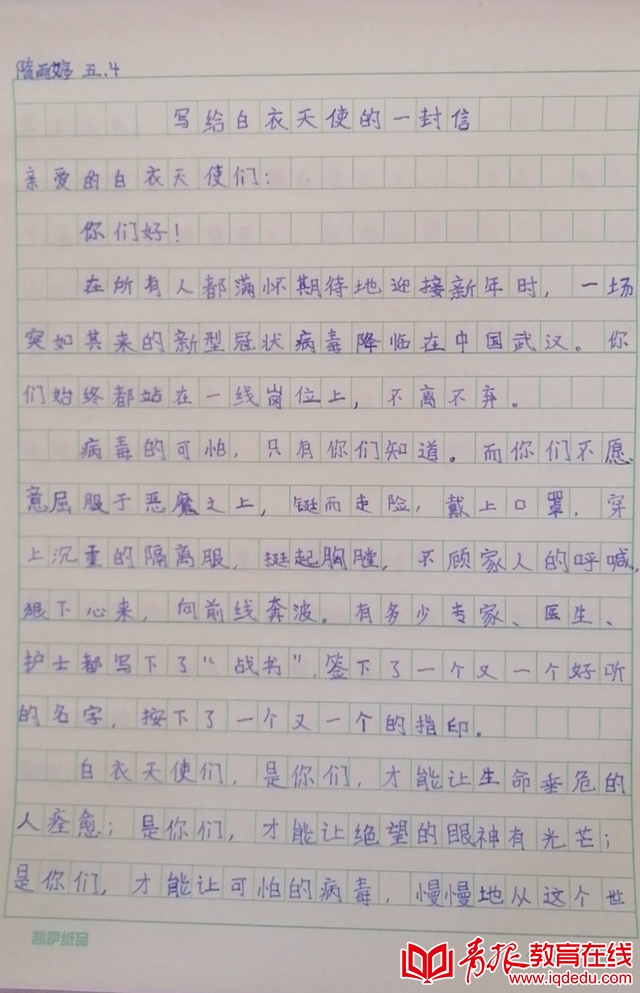 隋雨婷 五.4
写给白衣天使的一封信
亲爱的白衣天使们：
你们好！
在所有人都满怀期待地迎接新年时，一场
突如其来的新型冠状病毒降临在中国武汉。你
们始终都站在一线岗位上，不离不弃。
病毒的可怕，只有你们知道。而你们不愿
意屈服于恶魔之上，铤而走险，戴上口罩，穿
上沉重的隔离服，挺起胸膛，不顾家人的呼喊，
狠下心来，向前线奔波。有多少专家、医生、
护士都写下了“战书”，签下了一个又一个好听
的名字，按下了一个又一个的指印。
白衣天使们，是你们，才能让生命垂危的
人痊愈；是你们，才能让绝望的眼神有光芒；
是你们，才能让可怕的病毒，慢慢地从这个世
凯萨纸品
青报教育在线
www.iqdedu.com